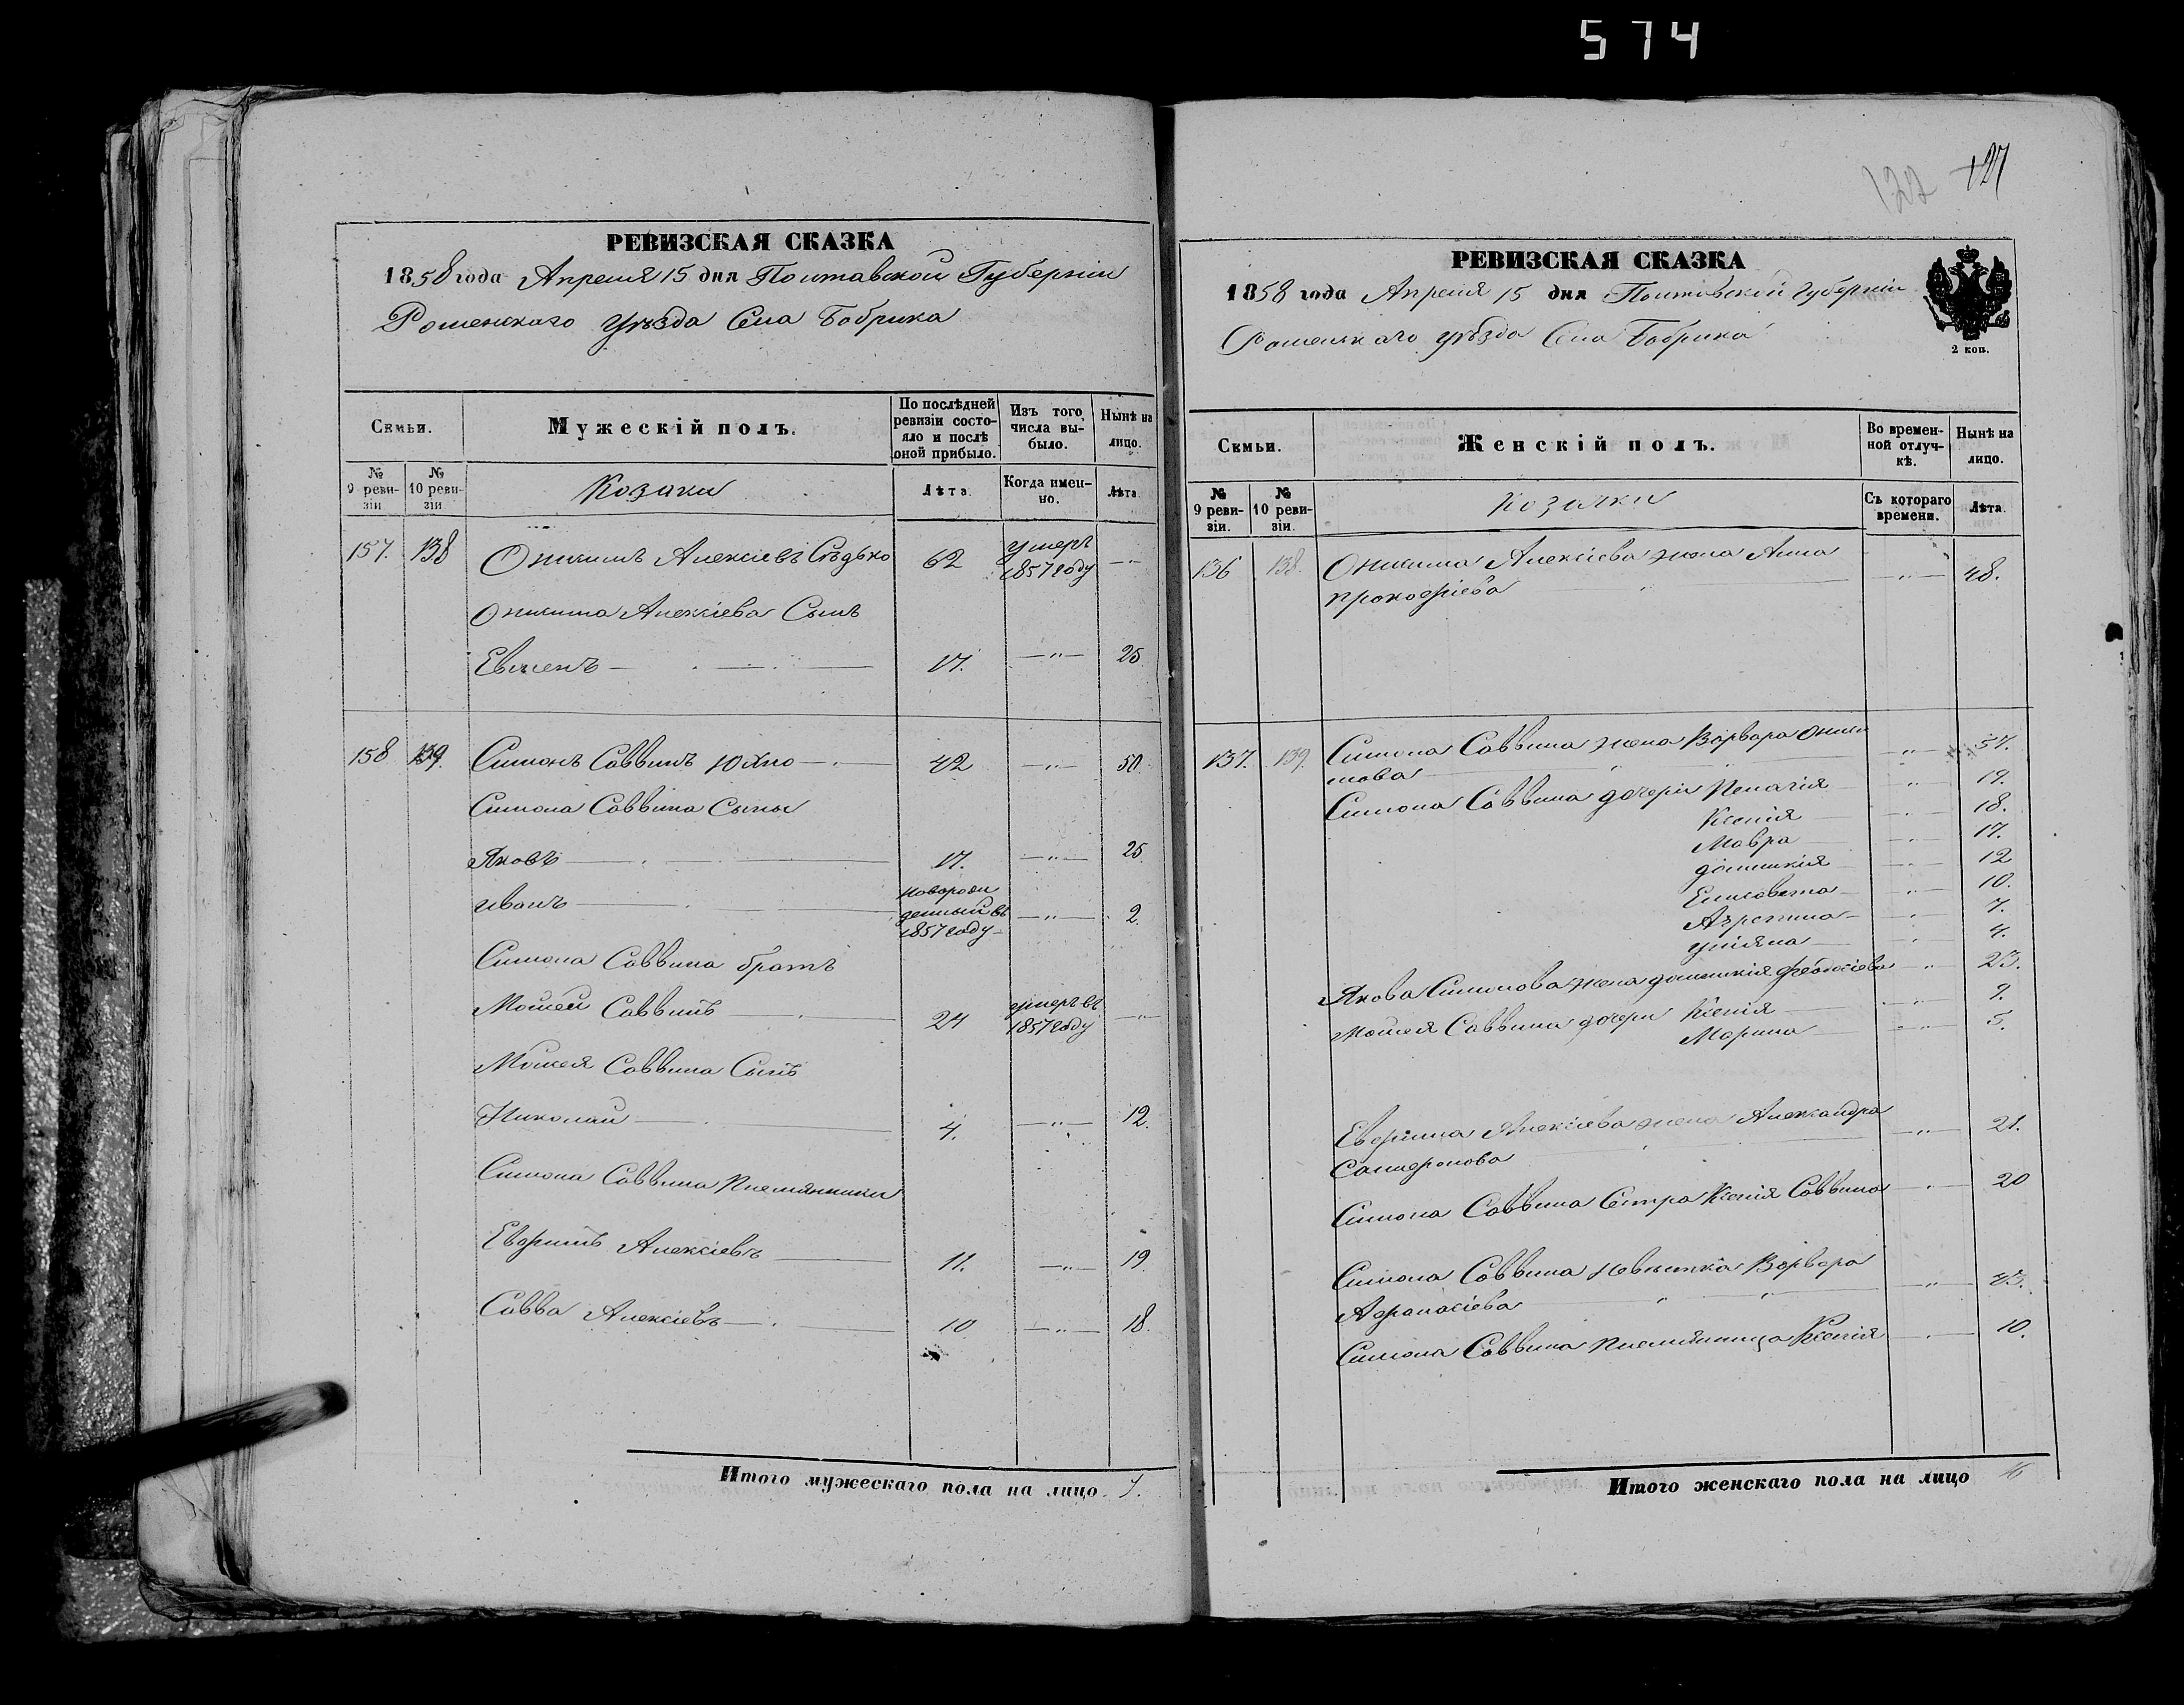 574
127
132
РЕВИЗСКАЯ СКАЗКА
1858 года Апреля 15 дня Полтавской Губерніи
Роменскаго Уѣзда Села Бобрика
Семьи.
Мужескій полъ.
По послѣдней ревизіи состояло и послѣ оной прибыло.
Изъ того числа выбыло.
Нынѣ на лицо.
№ 9 ревизіи
№ 10 ревизіи
Козаки
Лѣта.
Когда именно.
Лѣта
157. 138 Онисимъ Алексіевъ Сѣдько 62 умеръ 1857 году —"—
Онисима Алексіева Сынъ
Евменъ 17. —"— 25
158 139. Симонъ Саввинъ Юхно 42 —"— 50.
Симона Саввина Сыны
Яковъ 17. —"— 25.
Иванъ новорожденный въ 1857 году —"— 2.
Симона Саввина братъ
Мойсей Саввинъ 24 умеръ въ 1857 году —"—
Мойсея Саввина Сынъ
Николай 4. —"— 12.
Симона Саввина Племянники
Евфимъ Алексіевъ 11. —"— 19.
Савва Алексіевъ 10 —"— 18.
Итого мужескаго пола на лицо 7.
РЕВИЗСКАЯ СКАЗКА
1858 года Апреля 15 дня Полтавской губерніи
Роменскаго уѣзда Села Бобрика
2 коп.
Семьи.
Женскій полъ.
Во временной отлучкѣ.
Нынѣ на лицо.
№ 9 ревизіи.
№ 10 ревизіи.
Козачки
Съ котораго времени.
Лѣта.
136 138. Онисима Алексіева жена Анна —"— 48.
прокофіева
137. 139. Симона Саввина жена ВарвараОниси —"— 51.
мова
Симона Саввина дочери Пелагія " 19.
Ксенія —"— 18.
Мавра —"— 17.
домникія —"— 12
Елисавета —"— 10.
Агрепина —"— 7.
уліяна —"— 4.
Якова Симонова жена домникія феодосіева —"— 23.
Мойсея Саввина дочери Ксенія —"— 9.
Марина —"— 5.
Евфима Алексіева жена Александра —"— 21.
Самфронова
Симона Саввина Сестра Ксенія Саввина —"— 20
Симона Саввина невѣстка Варвара —"— 43.
Афанасіева
Симона Саввина племянница Ксенія —"— 10.
Итого женскаго пола на лицо 16